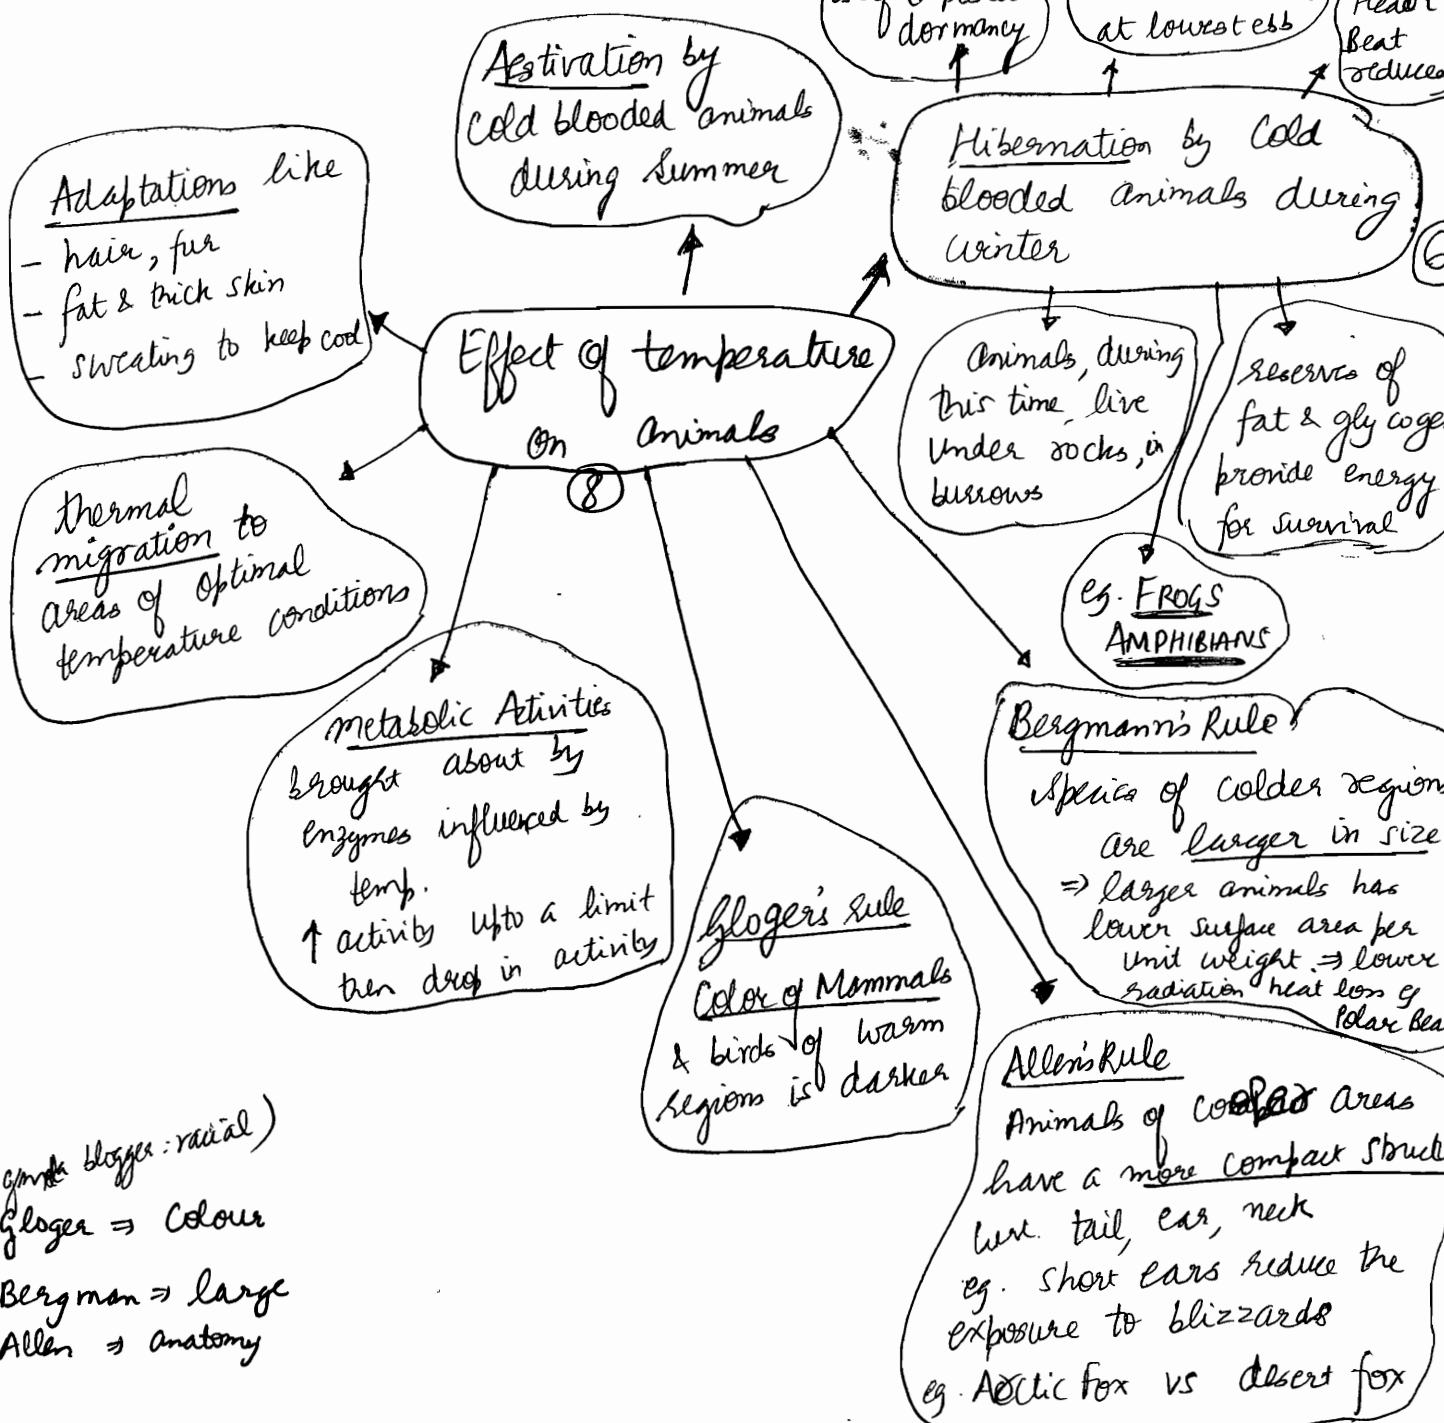 dormancy
at lowest ebb
Beat
reduces
Aestivation by
cold blooded animals
during Summer
Hibernation by Cold
blooded animals during
winter
Adaptations like
- hair, fur
- fat & thick skin
- sweating to keep cool
Effect of temperature
on animals
8
6
animals, during
this time, live
under rocks, in
burrows
reserves of
fat & glycoge
provide energy
for survival
eg. FROGS
AMPHIBIANS
thermal
migration to
areas of optimal
temperature conditions
metabolic Activities
brought about by
enzymes influenced by
temp.
↑ activity upto a limit
then drop in activity
Gloger's rule
Color of Mammals
& birds of warm
regions is darker
Bergmann's Rule
species of colder regions
are larger in size
⇒ larger animals has
lower surface area per
unit weight. ⇒ lower
radiation heat loss eg
Polar Bea
Allen's Rule
Animals of areas
have a more compact struct
tail, ear, neck
eg. short ears reduce the
exposure to blizzards
eg. Arctic fox vs desert fox
blogger: racial)
Gloger ⇒ Colour
Bergman ⇒ large
Allen ⇒ anatomy